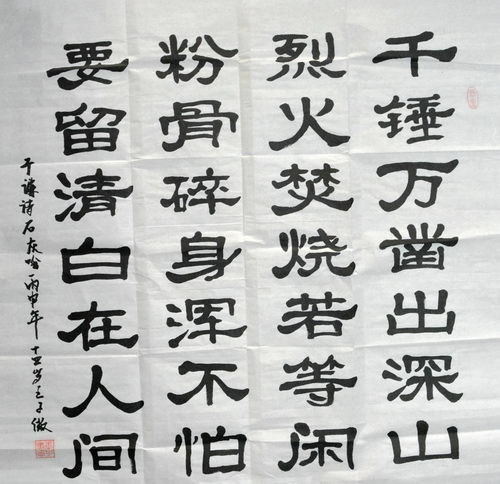 千锤万凿出深山
烈火焚烧若等闲
粉骨碎身浑不怕
要留清白在人间
于谦诗石灰吟丙申年十五岁王子傲